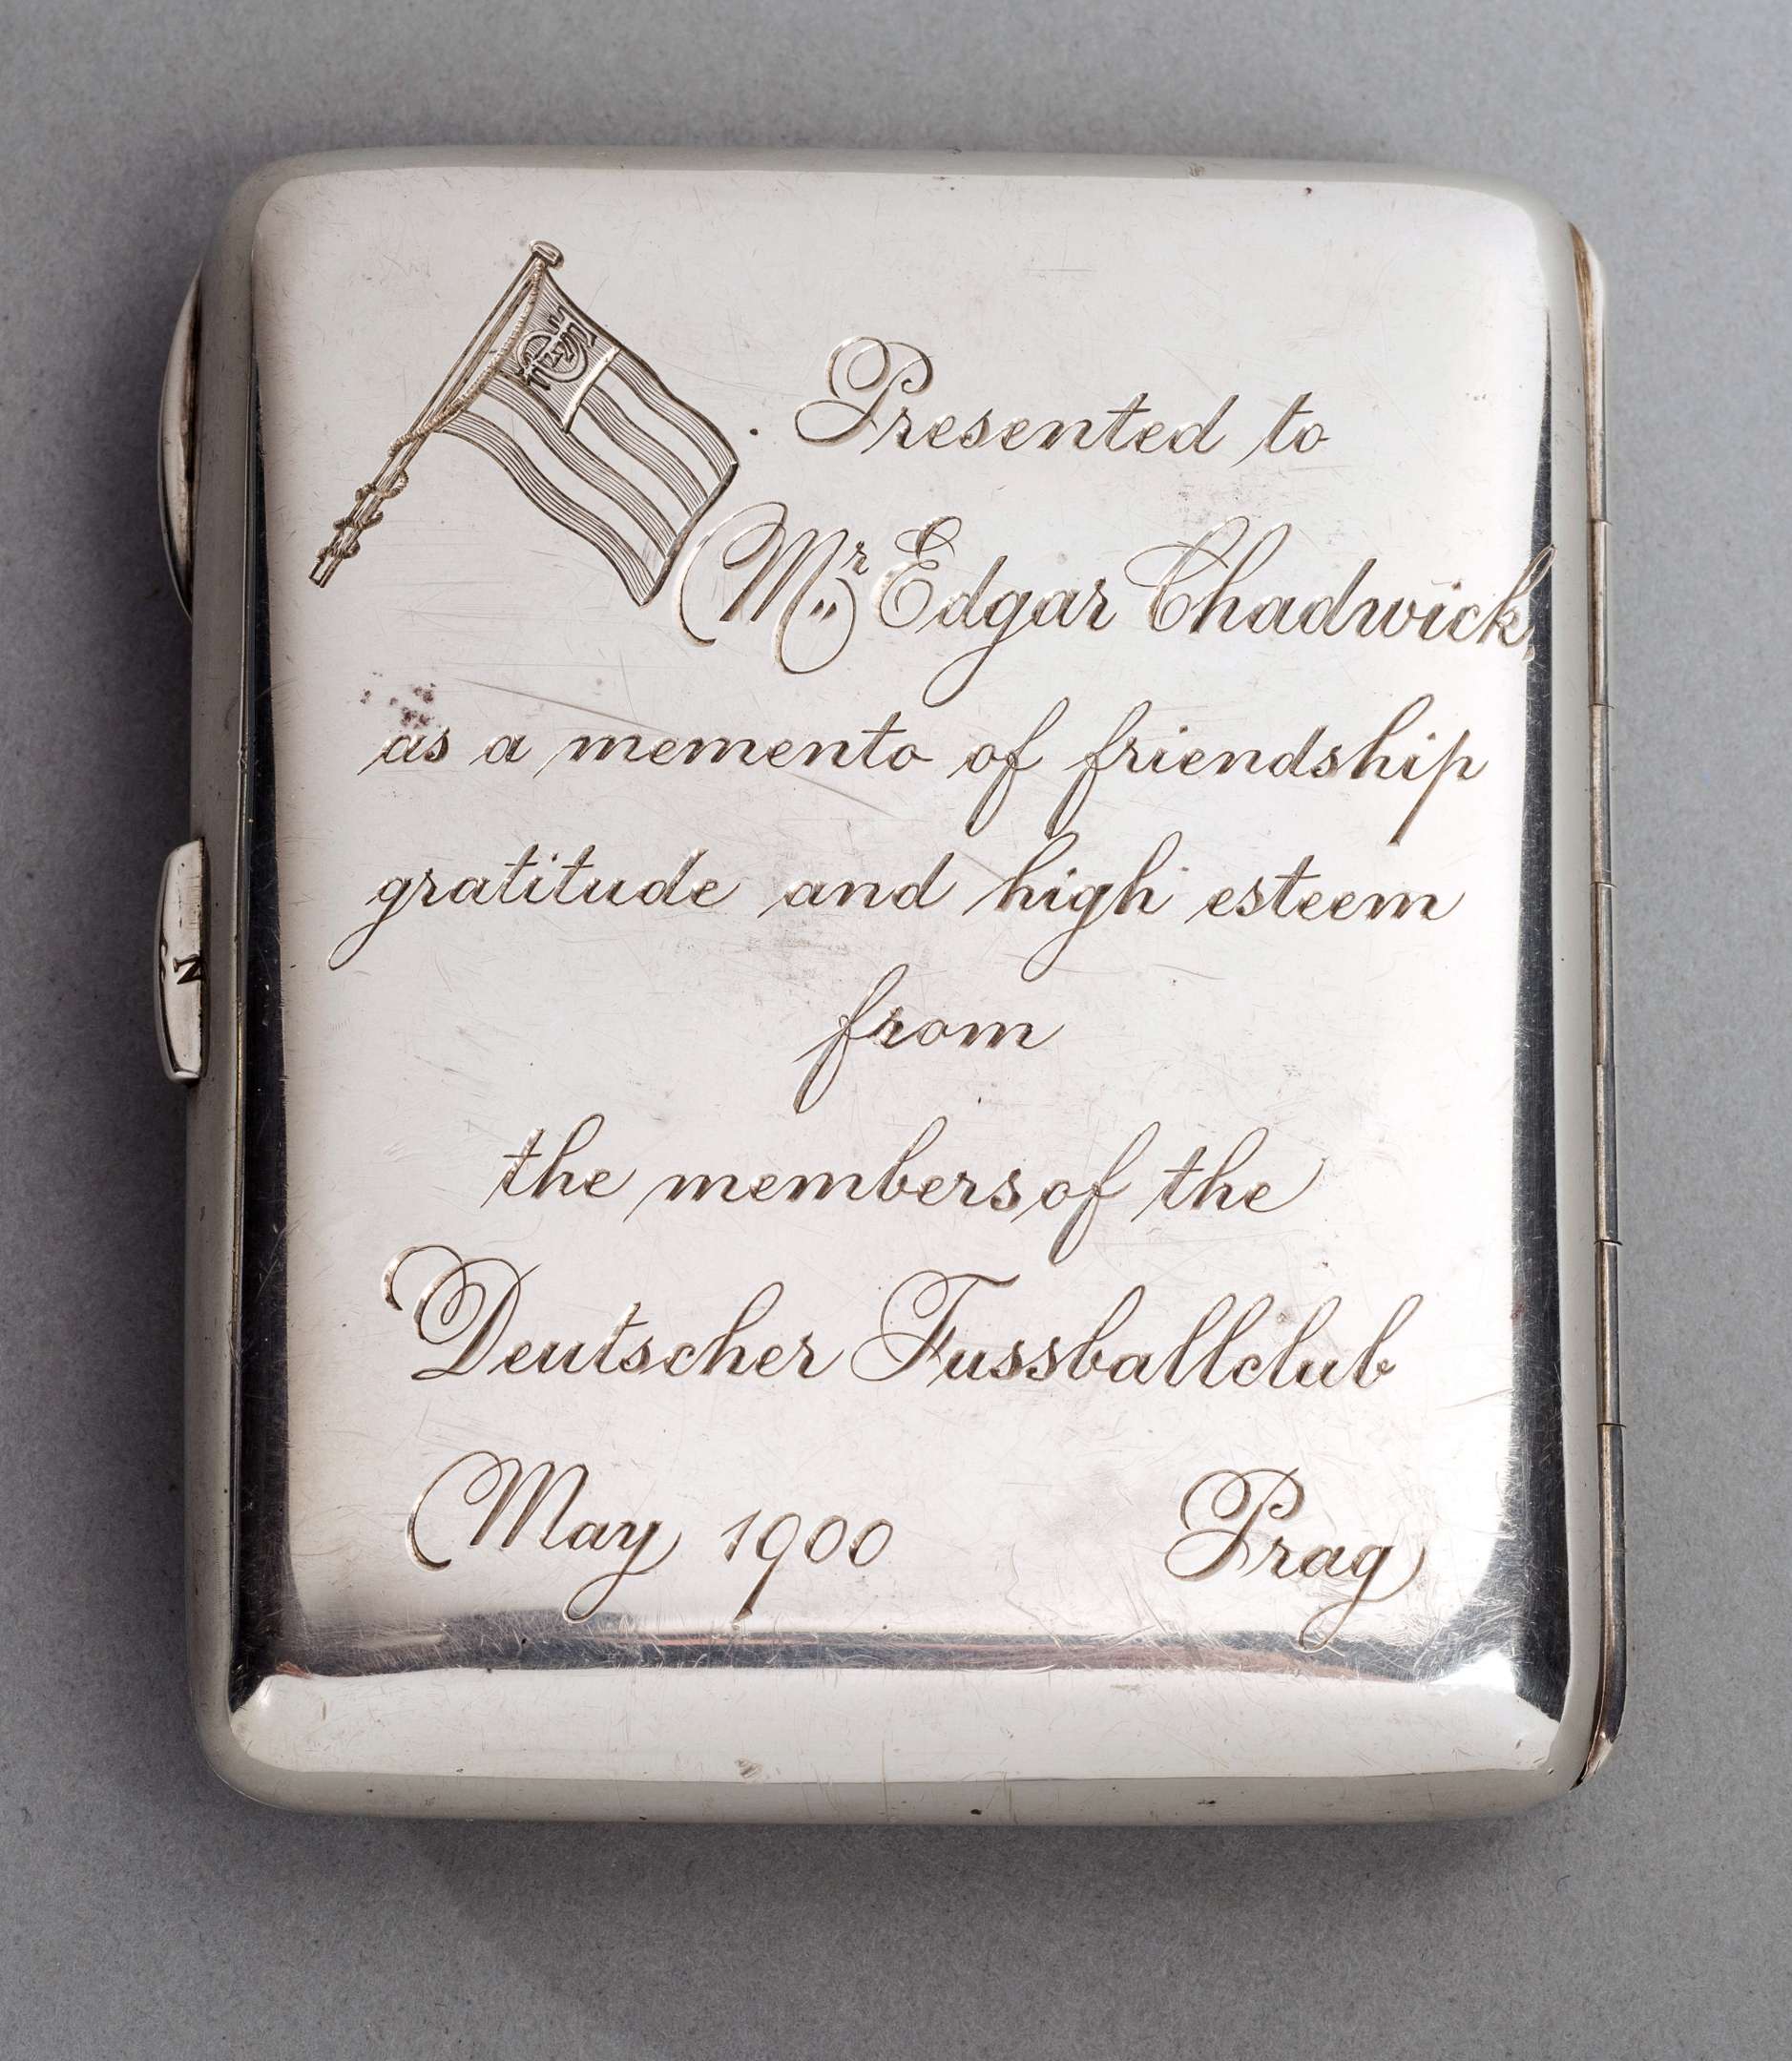 Presented to
Mr Edgar Chadwick,
as a memento of friendship
gratitude and high esteem
from
the members of the
Deutscher Fussballclub
May 1900 Prag